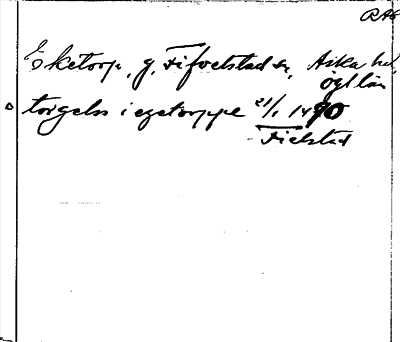 RAÄ
Eketorp, g, Fifvelstad sn, Aska hd,
ögl län
torgels i egetorppe 21/1 1490
Fielstad